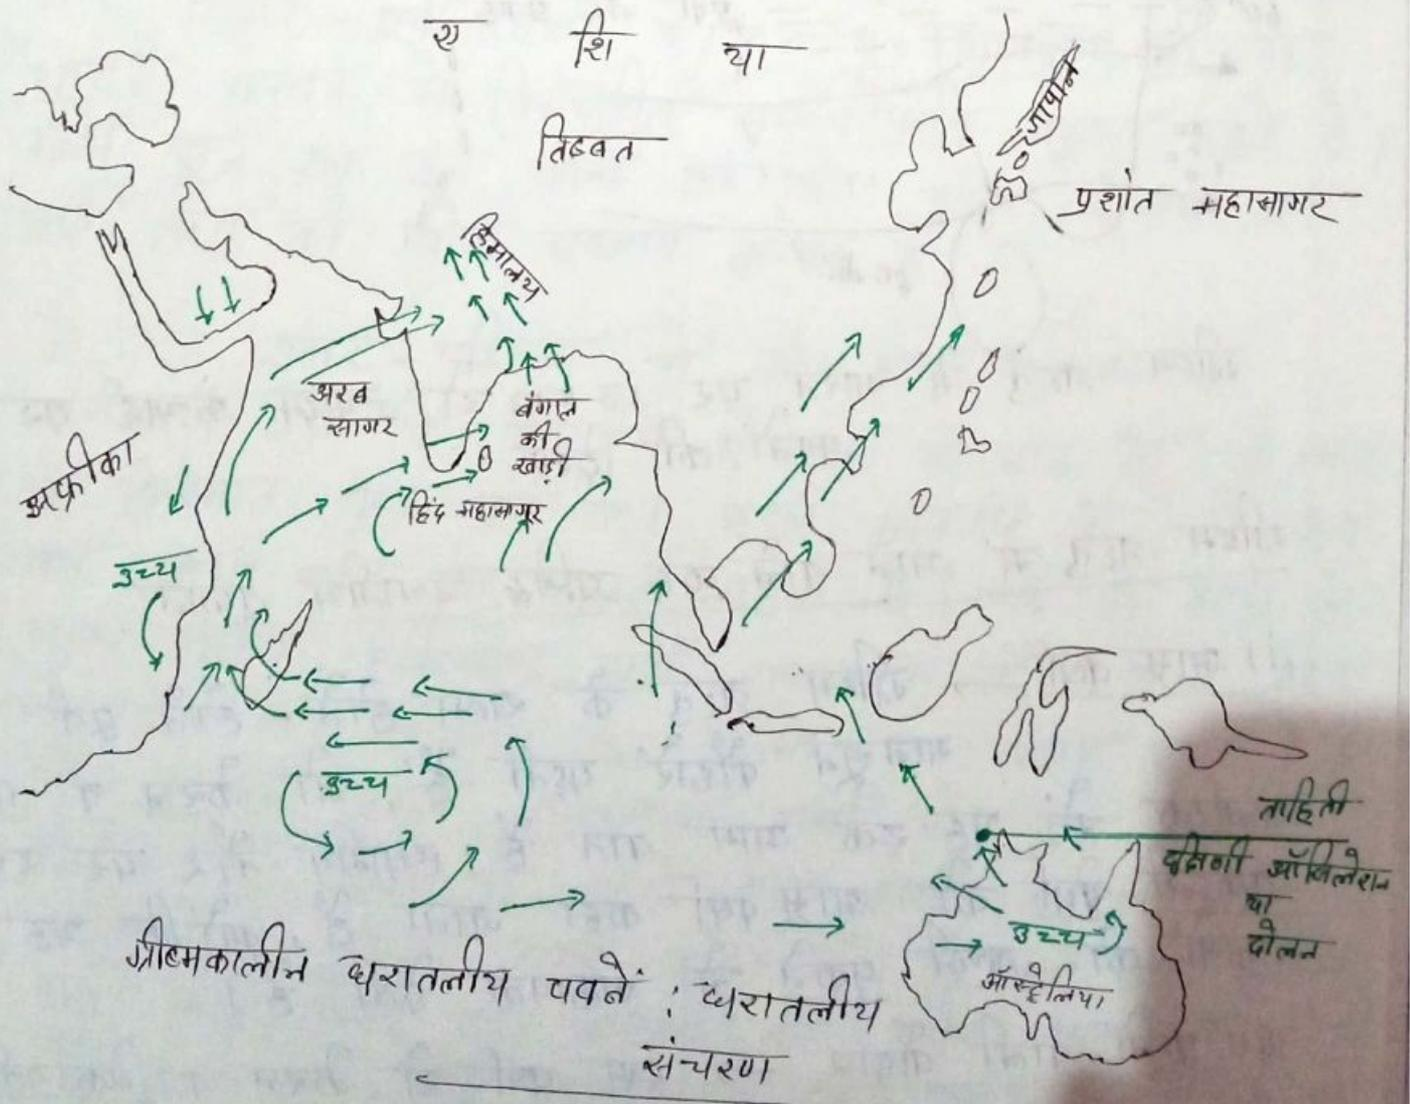 एशिया
तिब्बत
जापान
प्रशांत महासागर
हिमालय
अरब
सागर
बंगाल
की
खाड़ी
अफ्रीका
हिंद महासागर
उच्च
उच्च
ताहिती
दक्षिणी ऑसिलेशन
या
दोलन
उच्च
ऑस्ट्रेलिया
ग्रीष्मकालीन धरातलीय पवनें : धरातलीय
संचरण